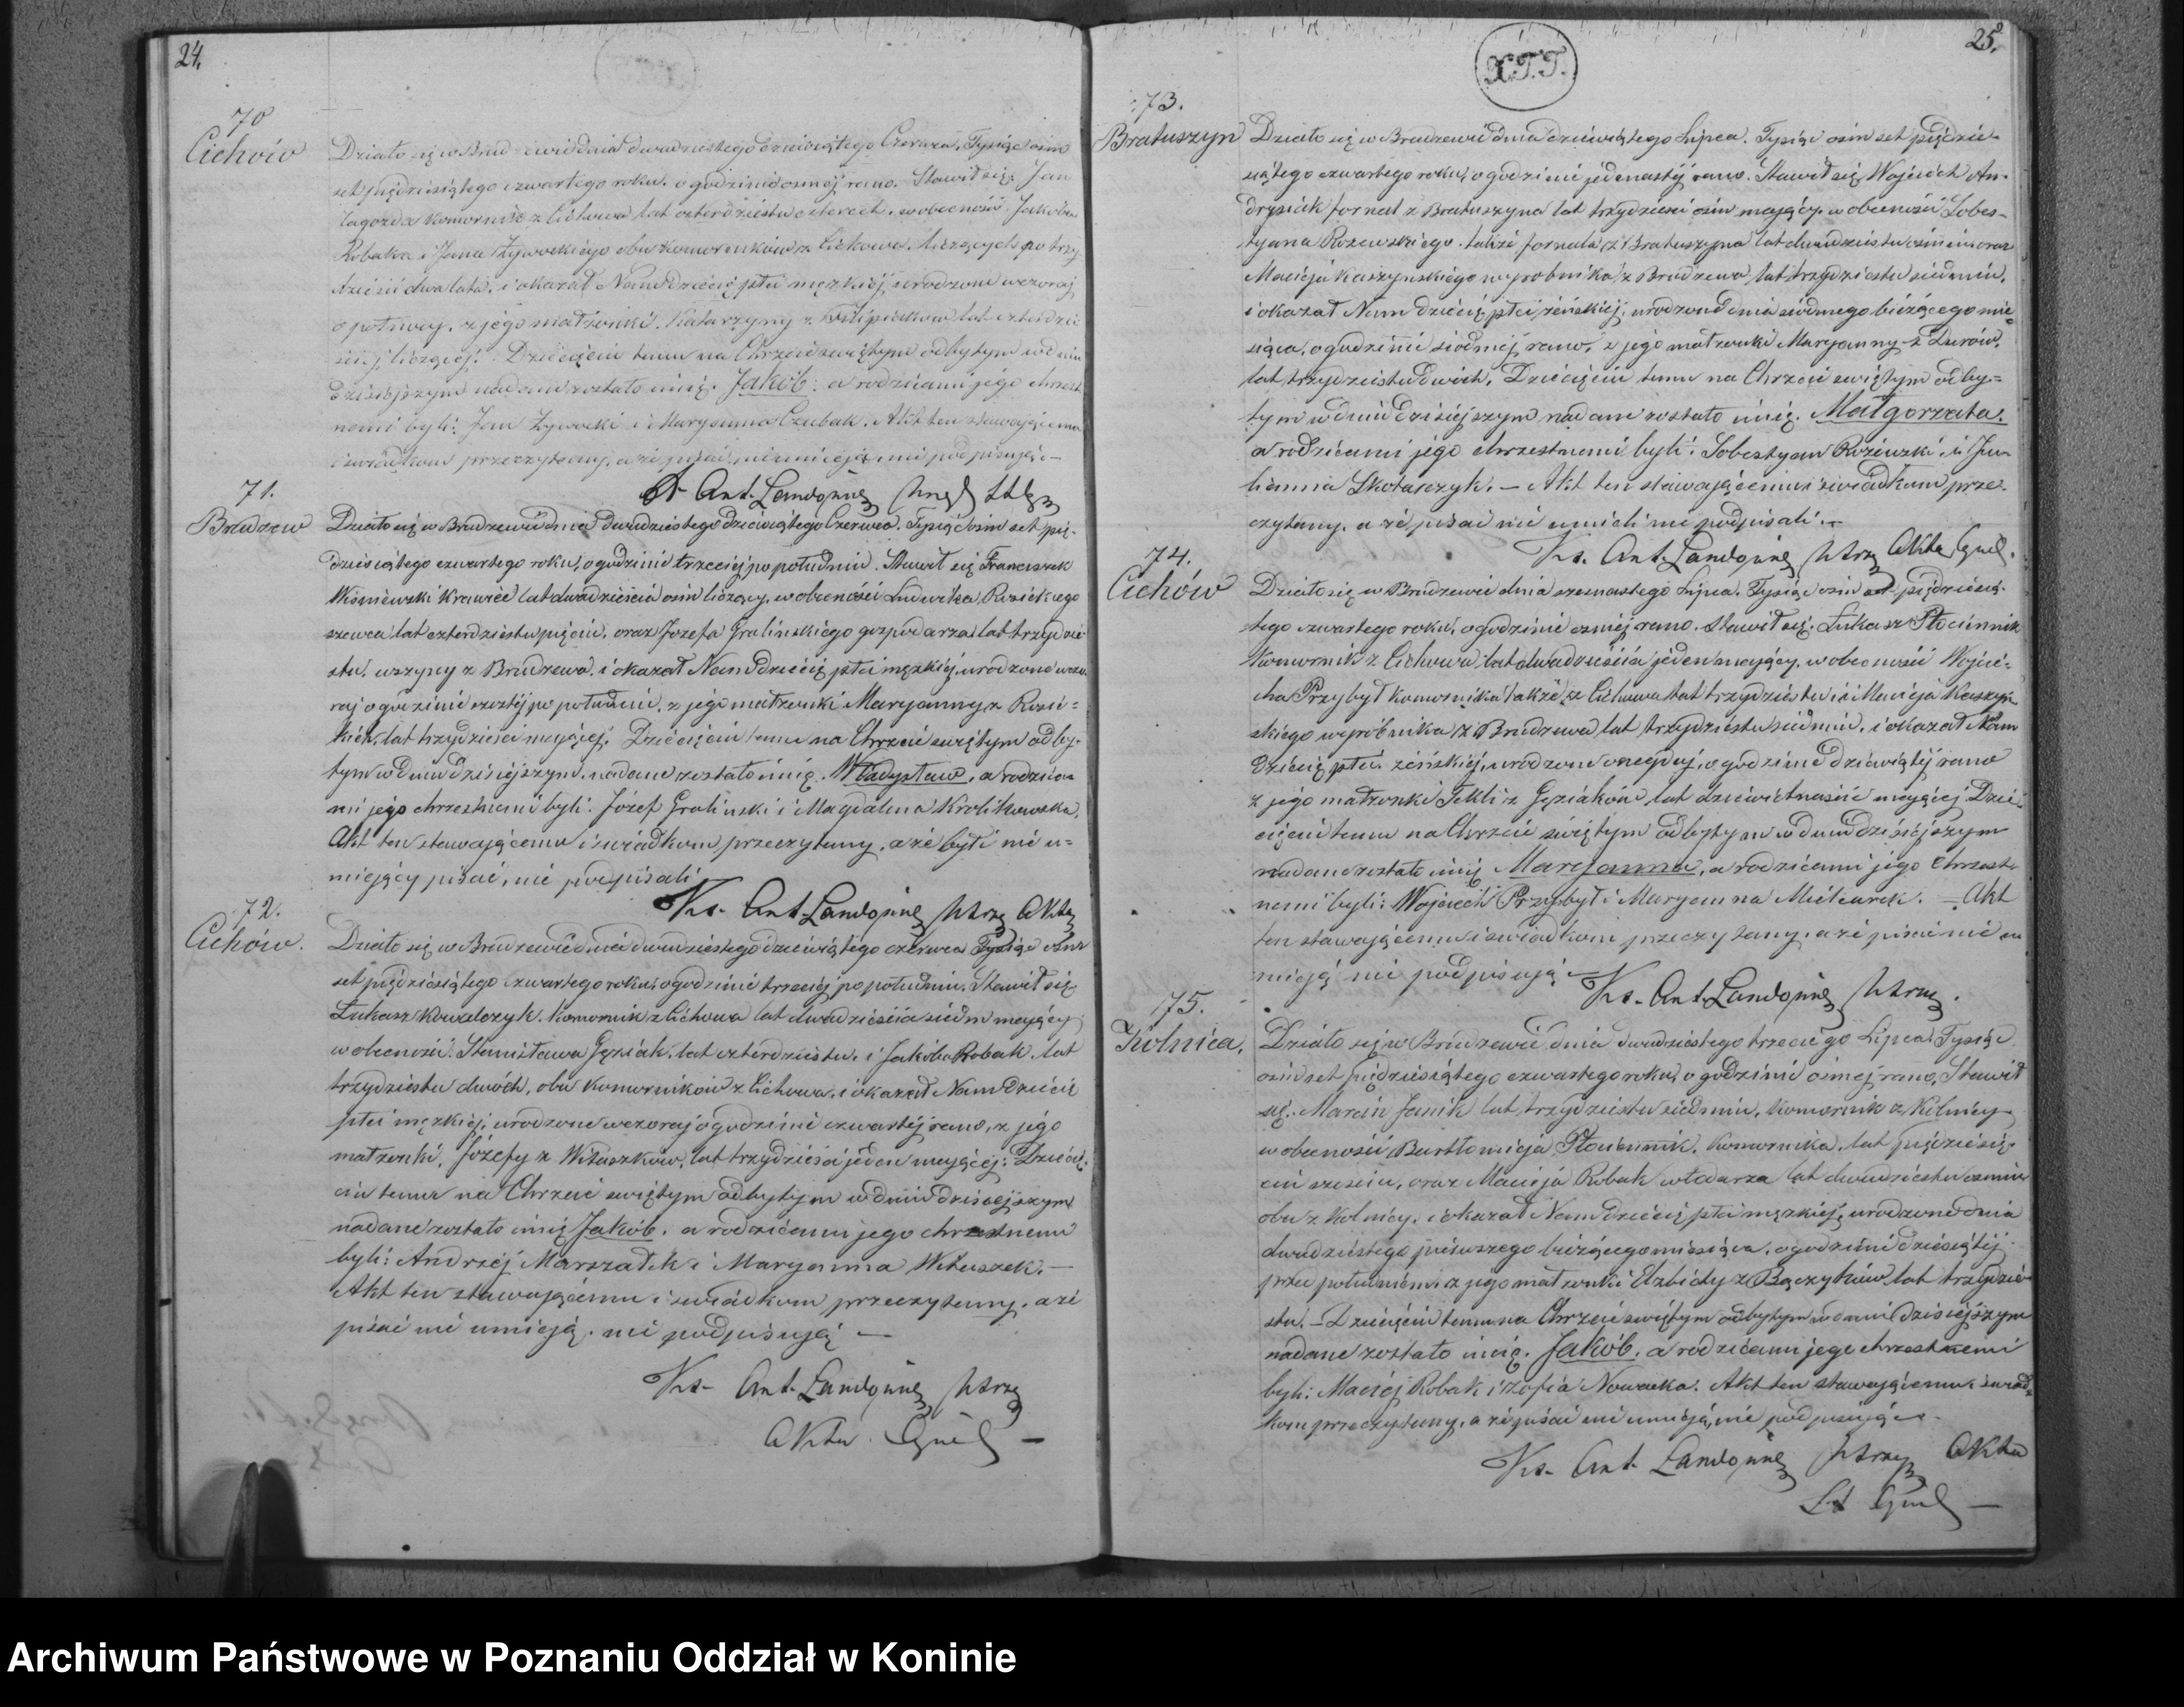 24.
70
Cichów
Działo się w Brudzewie dnia dwudziestego dziewiątego Czerwca, Tysiąc ośm
set pięćdziesiątego czwartego roku, o godzinie ósmej rano. Stawił się Jan
Łagoda komornik z Cichowa lat czterdzieści czterech, w obecności Jakóba
Robaka i Jana Żywockiego obu komorników z Cichowa liczących po trzy
dzieści dwa lata, i okazał Nam dziecię płci męzkiej urodzone wczoraj
o północy, z jego małżonki Katarzyny z Filipiaków lat czterdzie
ści liczącej. Dziecięciu temu na Chrzcie świętym odbytym w dniu
dzisiejszym nadane zostało imię Jakób: a rodzicami jego chrzest
nemi byli: Jan Żywocki i Maryanna Czubak. Akt ten stawającemu
i świadkom przeczytany, a że pisać nieumieją, nie podpisują —
X. Ant. Landowicz
71.
Brudzew
Działo się w Brudzewie dnia dwudziestego dziewiątego Czerwca, Tysiąc ośm set pię-
dziesiątego czwartego roku, o godzinie trzeciej po południu. Stawił się Franciszek
Wiśniewski Krawiec lat dwadzieścia ośm liczący, w obecności Ludwika Rosickiego
szewca lat czterdziestu pięciu, oraz Józefa Gralińskiego gospodarza lat trzydzie
stu, wszyscy z Brudzewa, i okazał Nam dziecię płci męzkiej, urodzone wczo
raj o godzinie szóstej po południu, z jego małżonki Maryanny z Rosic=
kich, lat trzydzieści mającej. Dziecięciu temu na Chrzcie świętym odby-
tym w dniu dzisiejszym, nadane zostało imię Władysław, a rodzica
mi jego chrzestnemi byli: Józef Graliński i Magdalena Królikowska,
Akt ten stawającemu i świadkom przeczytany, a że byli nie u=
miejący pisać, nie podpisali
Ks. Ant. Landowicz utrz. Akta
72.
Cichów.
Działo się w Brudzewie dnia dwudziestego dziewiątego czerwca Tysiąc ośm
set pięćdziesiątego czwartego roku, o godzinie trzeciej po południu. Stawił się
Łukasz Kowalczyk, Komornik z Cichowa lat dwadzieścia siedm mający
w obecności Stanisława Gęziak, lat czterdziestu, i Jakóba Robak, lat
trzydziestu dwóch, obu Komorników z Cichowa, i okazał Nam dziecię
płci męzkiej, urodzone wczoraj o godzinie czwartej rano, z jego
małżonki, Józefy z Witaszków, lat trzydzieści jeden mającej. Dziecię-
ciu temu na Chrzcie świętym odbytym w dniu dzisiejszym
nadane zostało imię Jakób, a rodzicami jego chrzestnemi
byli: Andrzej Marszałek i Maryanna Witaszek. —
Akt ten stawającemu i świadkom przeczytany, a że
pisać nie umieją, nie podpisują —
Ks. Ant. Landowicz utrz.
Akta Cywil —
25.
73.
Bratuszyn
Działo się w Brudzewie dnia dziewiątego Lipca, Tysiąc ośm set pięćdzie-
siątego czwartego roku, o godzinie jedenastej rano. Stawił się Wojciech An-
drysiak fornal z Bratuszyna lat trzydzieści ośm mający, w obecności Sobes-
tyana Rożewskiego, także fornala, z Bratuszyna lat dwudziestu ośmiu oraz
Macieja Kaszyńskiego wyrobnika z Brudzewa, lat trzydziestu siedmiu,
i okazał Nam dziecię płci żeńskiej, urodzone dnia siódmego bieżącego mie-
siąca, o godzinie siódmej rano, z jego małżonki Maryanny z Durów,
lat trzydziestu dwóch. Dziecięciu temu na Chrzcie świętym odby=
tym w dniu dzisiejszym nadane zostało imię Małgorzata.
a rodzicami jego chrzestnemi byli: Sobestyan Rożewski i Ju-
lianna Skotarczyk. — Akt ten stawającemu i świadkom prze-
czytany, a że pisać nie umieli nie podpisali. —
Ks. Ant. Landowicz utrz Akta Cywil.
74.
Cichów
Działo się w Brudzewie dnia szesnastego Lipca, Tysiąc ośm set pięćdziesią-
tego czwartego roku, o godzinie ósmej rano. Stawił się Łukasz Płóciennik
Komornik z Cichowa, lat dwadzieścia jeden mający, w obecności Wojcie-
cha Przybył komornika także z Cichowa lat trzydziestu i Macieja Kaszyń
skiego wyrobnika z Brudzewa lat trzydziestu siedmiu, i okazał Nam
dziecię płci żeńskiej, urodzone onegdaj, o godzinie dziewiątej rano
z jego małżonki Tekli z Gęziaków, lat dziewiętnaście mającej. Dzie-
cięciu temu na Chrzcie świętym odbytym w dniu dzisiejszym
nadane zostało imię Maryanna, a rodzicami jego chrzest-
nemi byli: Wojciech Przybył i Maryanna Mielcarek. — Akt
ten stawającemu i świadkom przeczytany, a że pisać nie u
mieją nie podpisują — Ks. Ant. Landowicz utrz.
75.
Kolnica.
Działo się w Brudzewie dnia dwudziestego trzeciego Lipca Tysiąc
ośm set pięćdziesiątego czwartego roku, o godzinie ósmej rano, Stawił
się Marcin Janik lat trzydziestu siedmiu, komornik z Kolnicy
w obecności Bartłomieja Płóciennik, komornika, lat pięćdziesię-
ciu sześciu, oraz Macieja Robak włodarza lat dwudziestu ośmiu
obu z Kolnicy, i okazał Nam dziecię płci męzkiej, urodzone dnia
dwudziestego pierwszego bieżącego miesiąca, o godzinie dziesiątej
przed południem z jego małżonki Elżbiety z Bączyków lat trzydzie
stu. — Dziecięciu temu na Chrzcie świętym odbytym w dniu dzisiejszym
nadane zostało imię Jakób, a rodzicami jego chrzestnemi
byli: Maciej Robak i Zofia Nowacka. Akt ten stawającemu i świad-
kom przeczytany, a że pisać nie umieją, nie podpisują —
Ks. Ant. Landowicz utrz Akta
St Cywil —
X.T.T.
Archiwum Państwowe w Poznaniu Oddział w Koninie